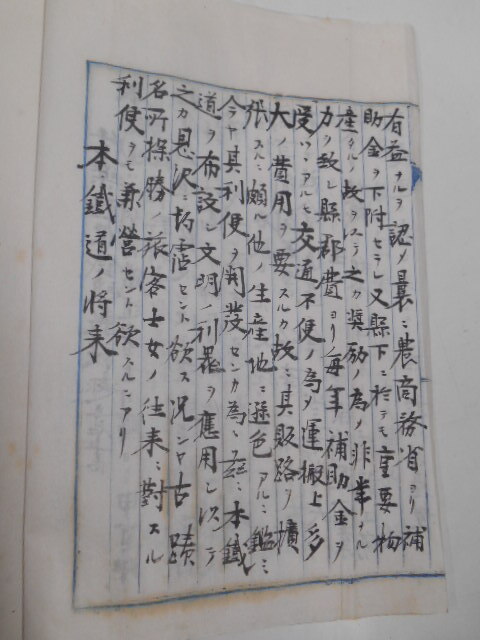 有益ナルヲ認メ曩ニ農商務省ヨリ補
助金ヲ下附セラレ又縣下ニ於テモ重要物
産タルノ故ヲ以テ之カ奨励ノ為メ非常ナル
力ヲ致シ縣郡費ヨリ毎年補助金ヲ
受ツヽアルモ交通不便ノ為メ運搬上多
大ノ費用ヲ要スルカ故ニ其販路ヲ擴
張スルニ頗ル他ノ生産地ニ遜色アルニ鑑ミ
今ヤ其利便ヲ開發センカ為ニ茲ニ本鐵
道ヲ布設シ文明ノ利器ヲ應用シ以テ
之カ恩沢ニ均霑セント欲ス況ンヤ古蹟
名所探勝ノ旅客士女ノ往来ニ對スル
利便ヲモ兼営セント欲スルニアリ
本鐵道ノ将来